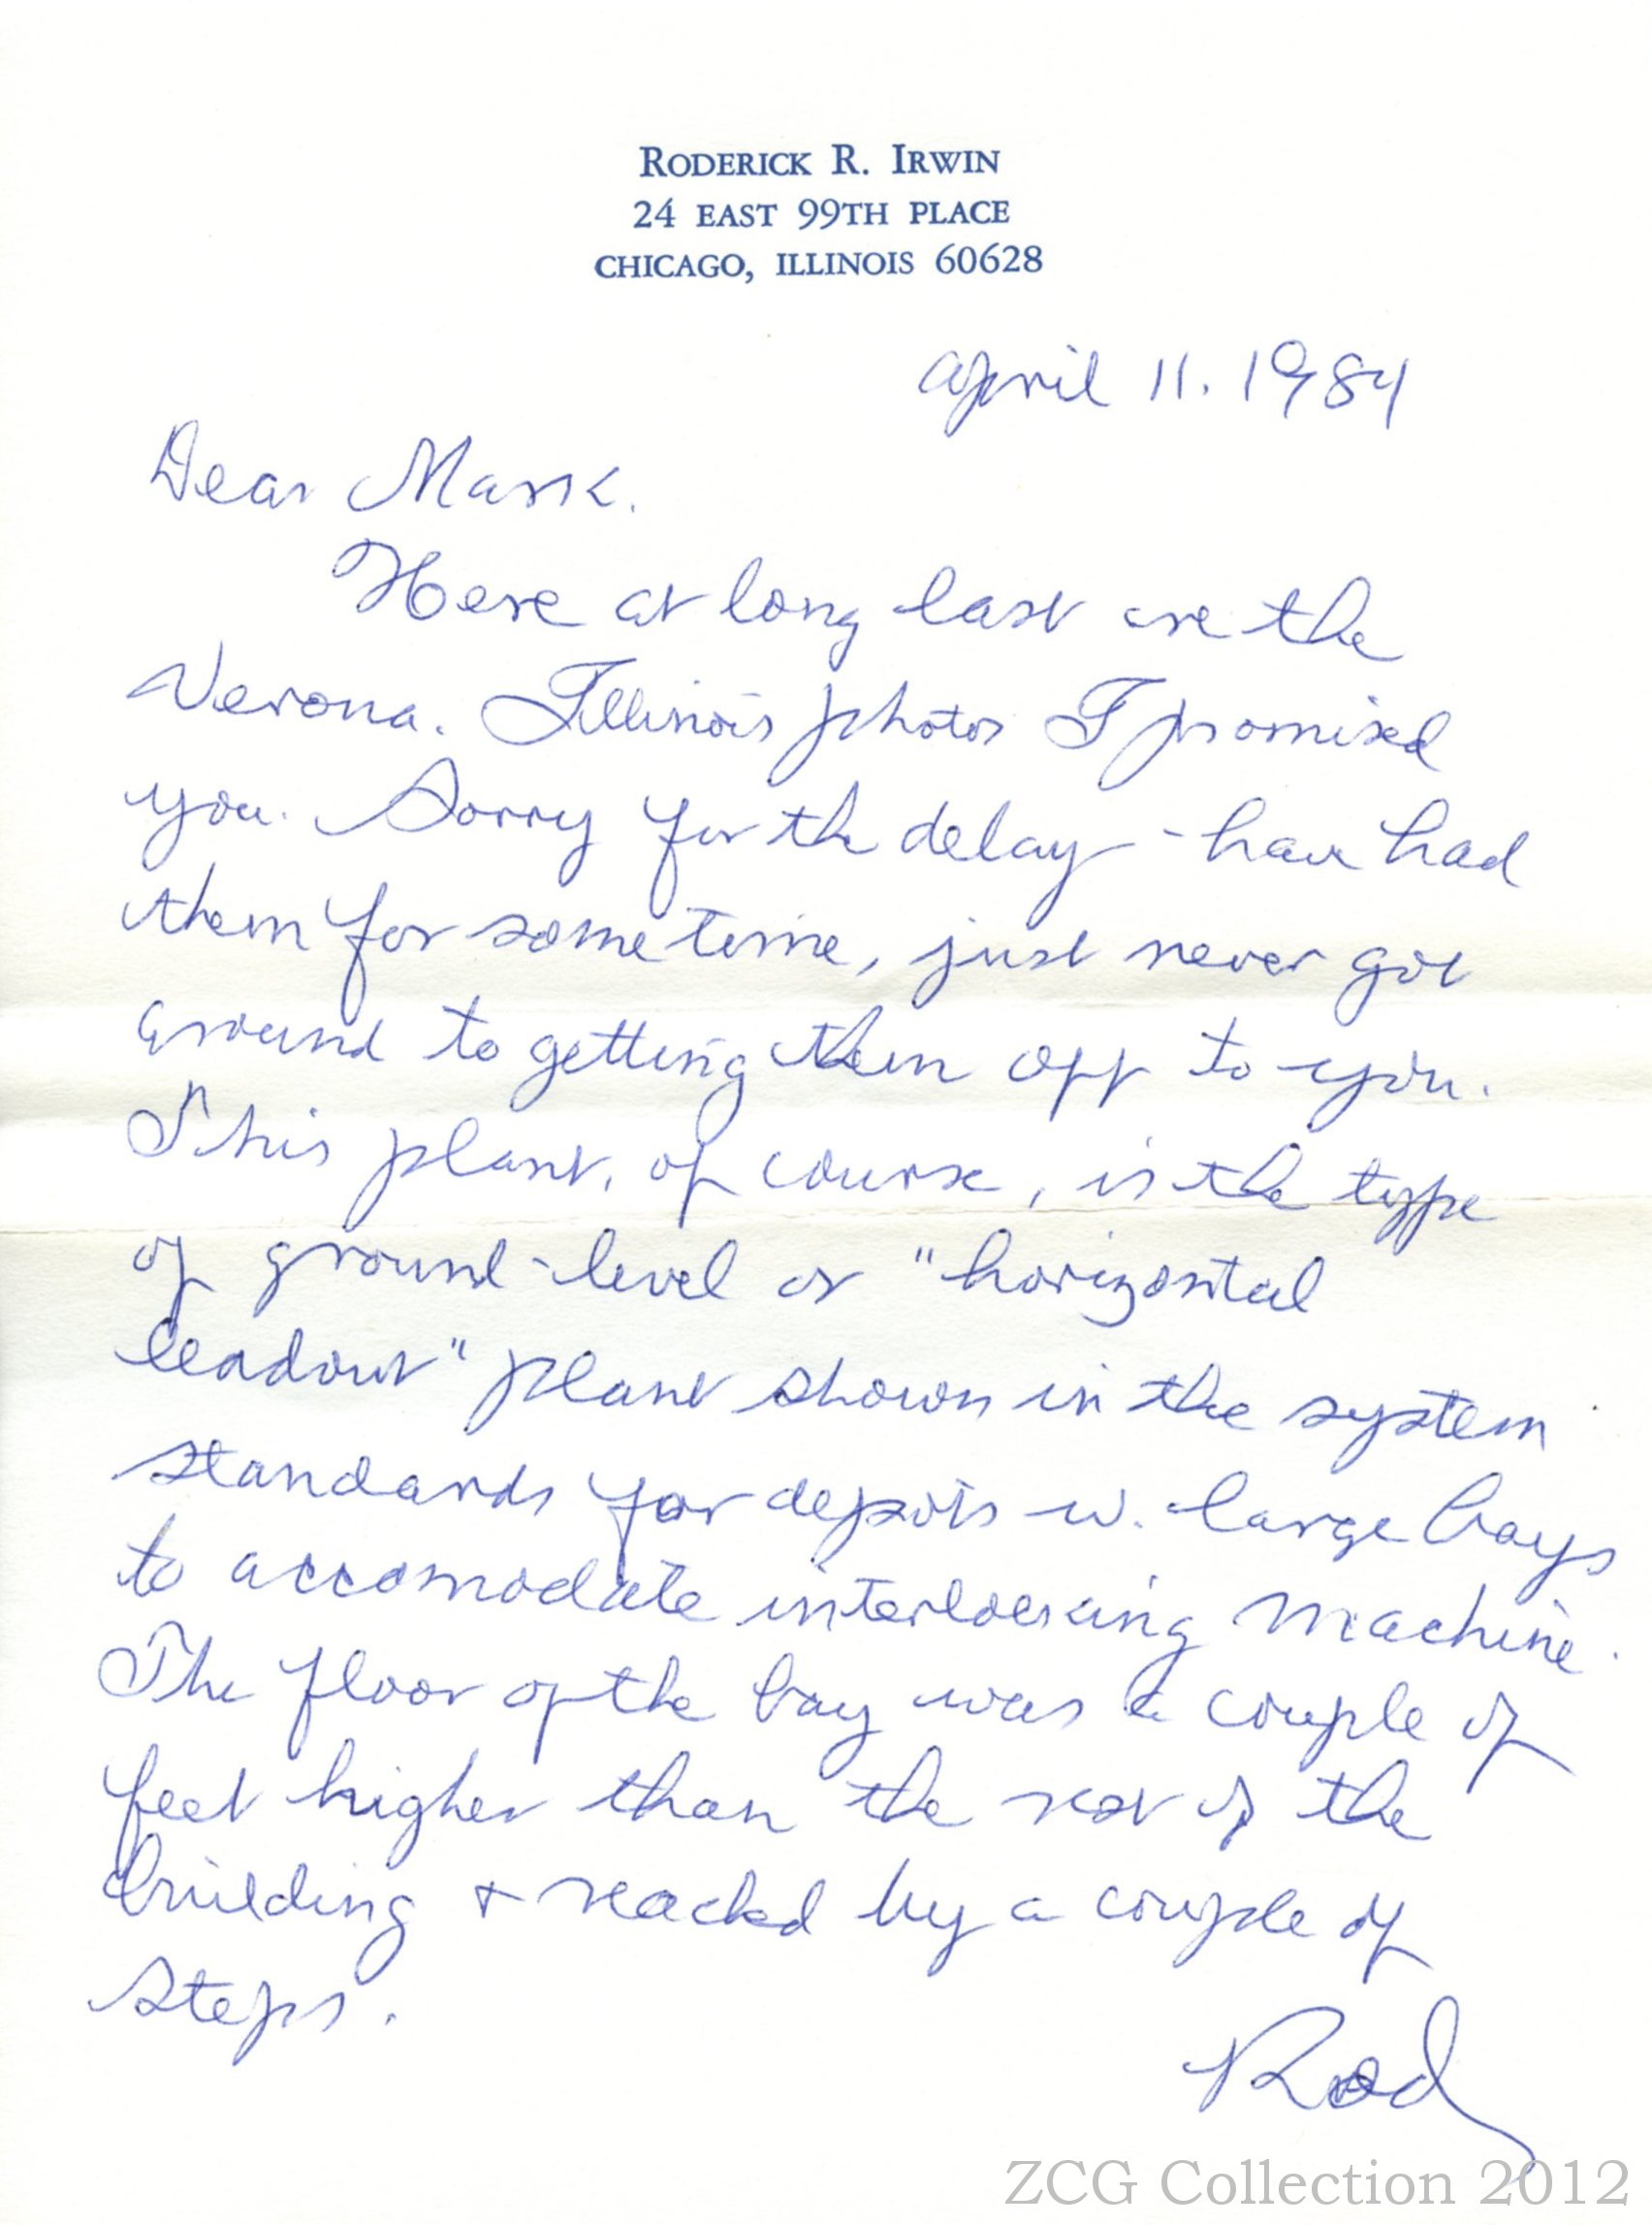 RODERICK R. IRWIN
24 EAST 99TH PLACE
CHICAGO, ILLINOIS 60628
April 11. 1984
Dear Mark.
Here at long last are the
Verona. Illinois photos I promised
you. Sorry for the delay - have had
them for some time, just never got
around to getting them off to you.
This plant, of course, is the type
of ground-level or "horizontal
leadout" plant shown in the system
standards for depots w. large bays
to accomodate interlocking machine.
The floor of the bay was a couple of
feet higher than the rest of the
building + reached by a couple of
steps.
Rod
ZCG Collection 2012